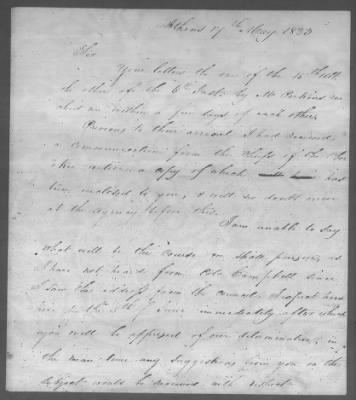 Athens 17th May 1833
Sir
Your letters the one of the 14th
the other of the 6th Instr by Mr Perkins
within a few days of each other
Previous to their arrival I had received
a communication from the Chiefs of the
nation a copy of which has
been enclosed to you, & will no doubt arrive
at the agency before this.
I am unable to say
what will be the course we shall pursue, as
I have not heard from Colo Campbell since
I saw the address from the council. I expect
him in the 5th of June immediately after which
you will be apprised of our determination, in
the mean time any suggestions from you on the
subject would be received with